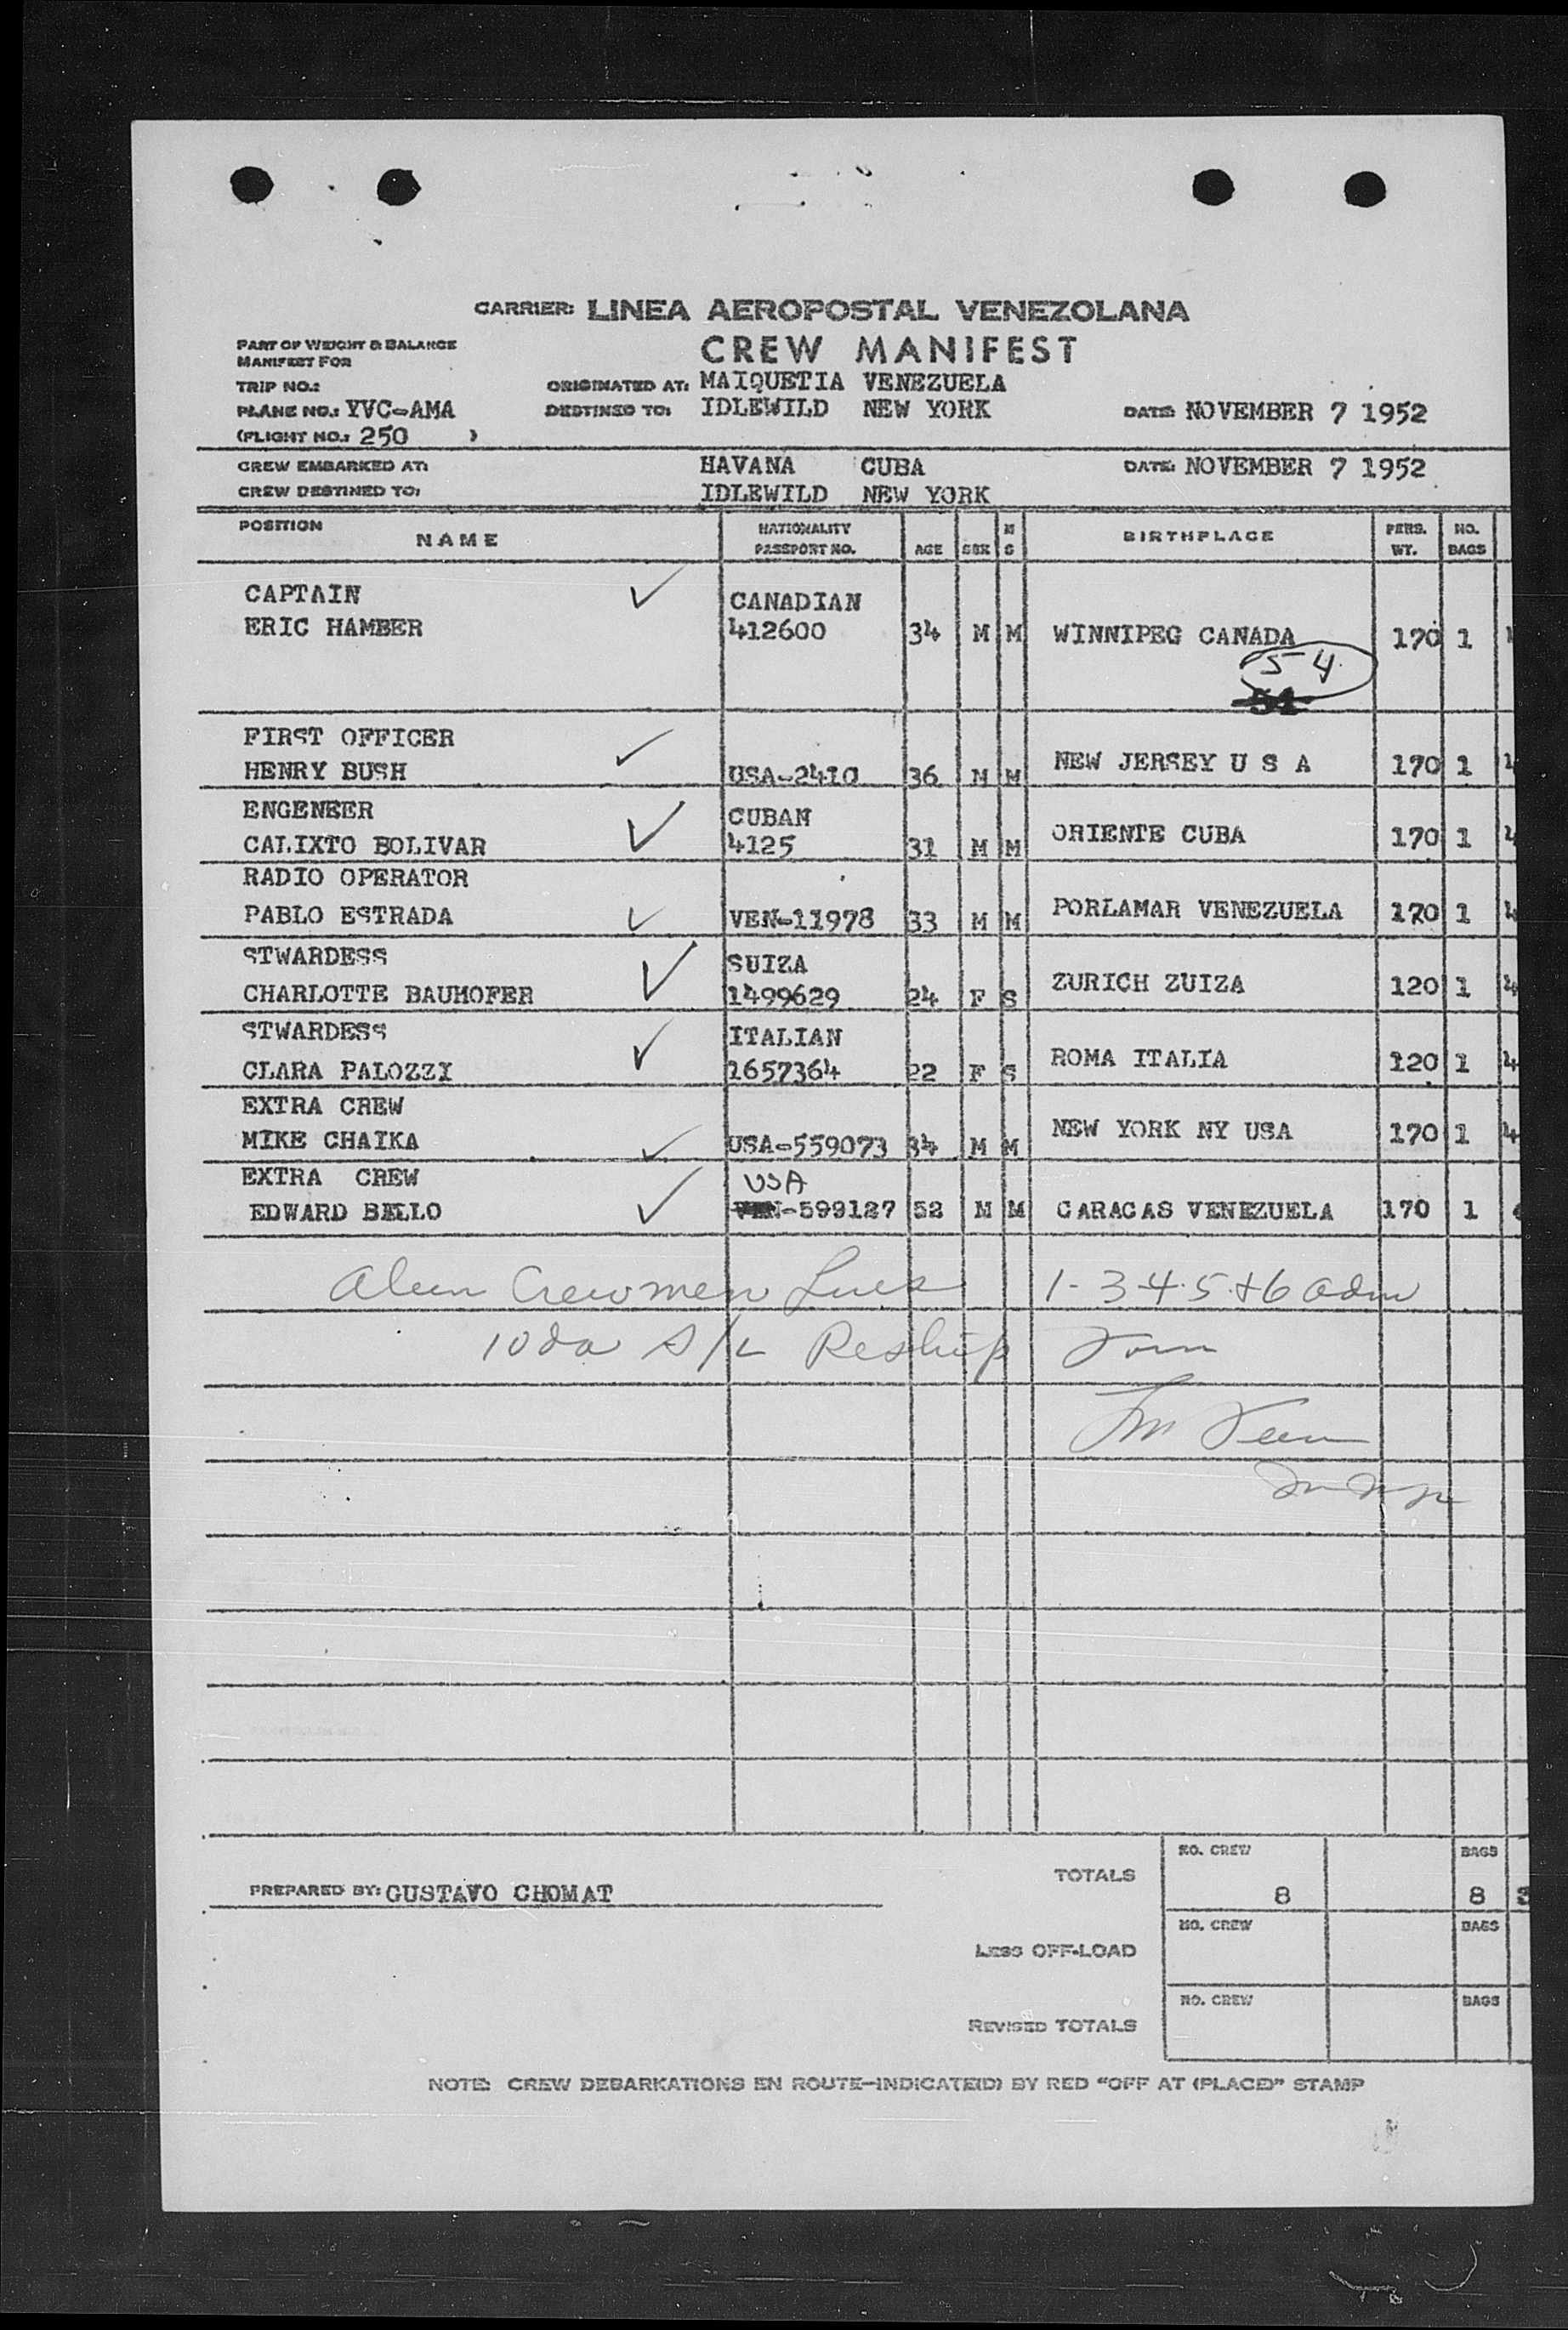 CARRIER: LINEA AEROPOSTAL VENEZOLANA
PART OF WEIGHT & BALANCE
MANIFEST FOR
CREW MANIFEST
TRIP NO.: ORIGINATED AT: MAIQUETIA VENEZUELA
PLANE NO.: YVC-AMA DESTINED TO: IDLEWILD NEW YORK DATE: NOVEMBER 7 1952
(FLIGHT NO.: 250 )
CREW EMBARKED AT: HAVANA CUBA DATE: NOVEMBER 7 1952
CREW DESTINED TO: IDLEWILD NEW YORK
POSITION NAME NATIONALITY PASSPORT NO. AGE SEX M S BIRTHPLACE PERS. WT. NO. BAGS
CAPTAIN CANADIAN
ERIC HAMBER 412600 34 M M WINNIPEG CANADA 170 1
54
51
FIRST OFFICER
HENRY BUSH USA-2410 36 M M NEW JERSEY U S A 170 1 4
ENGENEER CUBAN
CALIXTO BOLIVAR 4125 31 M M ORIENTE CUBA 170 1 4
RADIO OPERATOR
PABLO ESTRADA VEN-11978 33 M M PORLAMAR VENEZUELA 170 1 4
STWARDESS SUIZA
CHARLOTTE BAUHOFER 1499629 24 F S ZURICH ZUIZA 120 1 4
STWARDESS ITALIAN
CLARA PALOZZI 1657364 22 F S ROMA ITALIA 120 1 4
EXTRA CREW
MIKE CHAIKA USA-559073 34 M M NEW YORK NY USA 170 1 4
EXTRA CREW USA
EDWARD BELLO VEN-599127 52 M M CARACAS VENEZUELA 170 1
Alien Crewmen Lines 1-3-4-5+6 adm
10 da S/L Reship
PREPARED BY: GUSTAVO CHOMAT
TOTALS NO. CREW 8 BAGS 8 3
LESS OFF-LOAD NO. CREW BAGS
REVISED TOTALS NO. CREW BAGS
NOTE: CREW DEBARKATIONS EN ROUTE-INDICATE(D) BY RED "OFF AT (PLACE)" STAMP